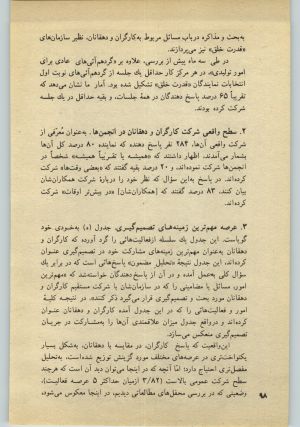 به‌بحث و مذاکره درباب مسائل مربوط به‌کارگران و دهقانان، نظیر سازمان‌های
«قدرت خلق» نیز می‌پردازند.
در طی سه ماه پیش از بررسی، علاوه بر «گردهم‌آئی‌های عادی برای
امور تولیدی»، در هر مرکز کار حداقل یك جلسه از گردهم‌آئی‌های نوبت اول
انتخابات نمایندگان «قدرت خلق» تشکیل شده بود. آمار ما نشان می‌دهد که
تقریباً ۶۵ درصد پاسخ دهندگان در همهٔ جلسات، و بقیه حداقل در یك جلسه
شرکت کرده بودند.
۲. سطح واقعی شرکت کارگران و دهقانان در انجمن‌ها. به‌عنوان مُعرّفی از
شرکت واقعی آن‌ها، ۲۸۴ نفر پاسخ دهنده که نماینده ۸۰ درصد کل آن‌ها
بشمار می‌آمدند، اظهار داشتند که «همیشه یا تقریباً همیشه» شخصاً در
انجمن‌ها شرکت نموده‌اند، و ۲۰ درصد بقیه گفتند که «بعضی وقت‌ها» شرکت
کرده‌اند. در پاسخ به‌این سؤال که نظر خود را دربارهٔ شرکت همکارانشان
بیان کنند، ۸۳ درصد گفتند که [همکارانشان] «در پیش‌تر اوقات» شرکت
کرده‌اند.
۳. عرصه مهم‌ترین زمینه‌های تصمیم‌گیری. جدول (۵) به‌خودی خود
گویاست. این جدول یك سلسله ازفعالیت‌هائی را گرد آورده که کارگران و
دهقانان به‌عنوان مهم‌ترین زمینه‌های مشارکت خود در تصمیم‌گیری عنوان
کرده‌اند. این جدول نتیجهٔ «تحلیل مضمون» پاسخ‌هائی است که در برابر یك
سؤال کلی به‌عمل آمده و در آن از پاسخ‌دهندگان خواسته‌شد که «مهم‌ترین
امور، مسائل یا مضامینی را که در سازمان‌شان با شرکت مستقیم کارگران و
دهقانان مورد بحث و تصمیم‌گیری قرار می‌گیرد ذکر کنند». در نتیجه کلیهٔ
امور و فعالیت‌هائی را که در این جدول آمده کارگران و دهقانان عنوان
کرده‌اند و درواقع جدول میزان علاقمندی آن‌ها را به‌مشارکت در جریان
تصمیم‌گیری منعکس می‌سازد.
این‌واقعیت که پاسخ کارگران، در مقایسه با دهقانان، به‌شکل بسیار
یکنواخت‌تری در عرصه‌های مختلف مورد گزینش توزیع شده‌است، به‌تحلیل
مفصل‌تری احتیاج دارد؛ اما آنچه که در اینجا می‌توان دید آن است که هرچند
سطح شرکت عمومی بالاست (۳/۸۲ ازمیان حداکثر ۵ عرصه فعالیت)،
وضعیتی که در بررسی محفل‌های مطالعاتی دیدیم، در اینجا معکوس می‌شود،
۹۸